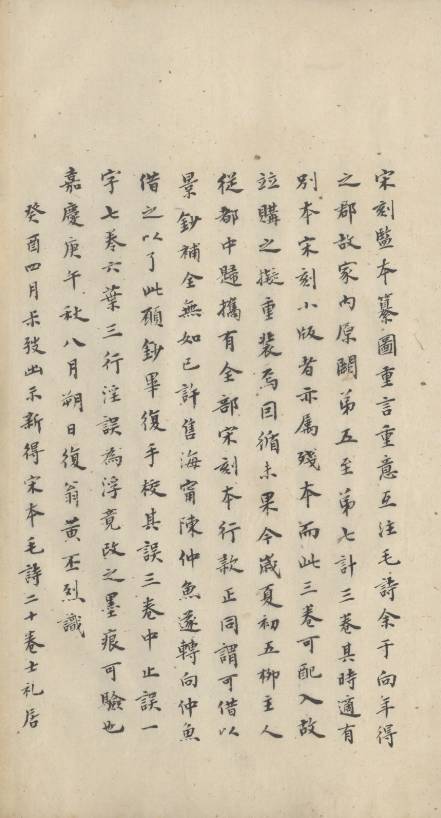 宋刻監本纂圖重言重意互注毛詩余于向年得
之郡故家內原闕第五至第七計三卷其時適有
別本宋刻小版者亦属殘本而此三卷可配入故
竝購之擬重裝焉因循未果今歲夏初五柳主人
從都中歸攜有全部宋刻本行款正同謂可借以
景鈔補全無如已許售海甯陳仲魚遂轉向仲魚
借之以了此願鈔畢復手校其誤三卷中止誤一
字七卷六葉三行淫誤為浮竟改之墨痕可驗也
嘉慶庚午秋八月朔日復翁黃丕烈識
癸酉四月出示新得宋本毛詩二十卷士礼居